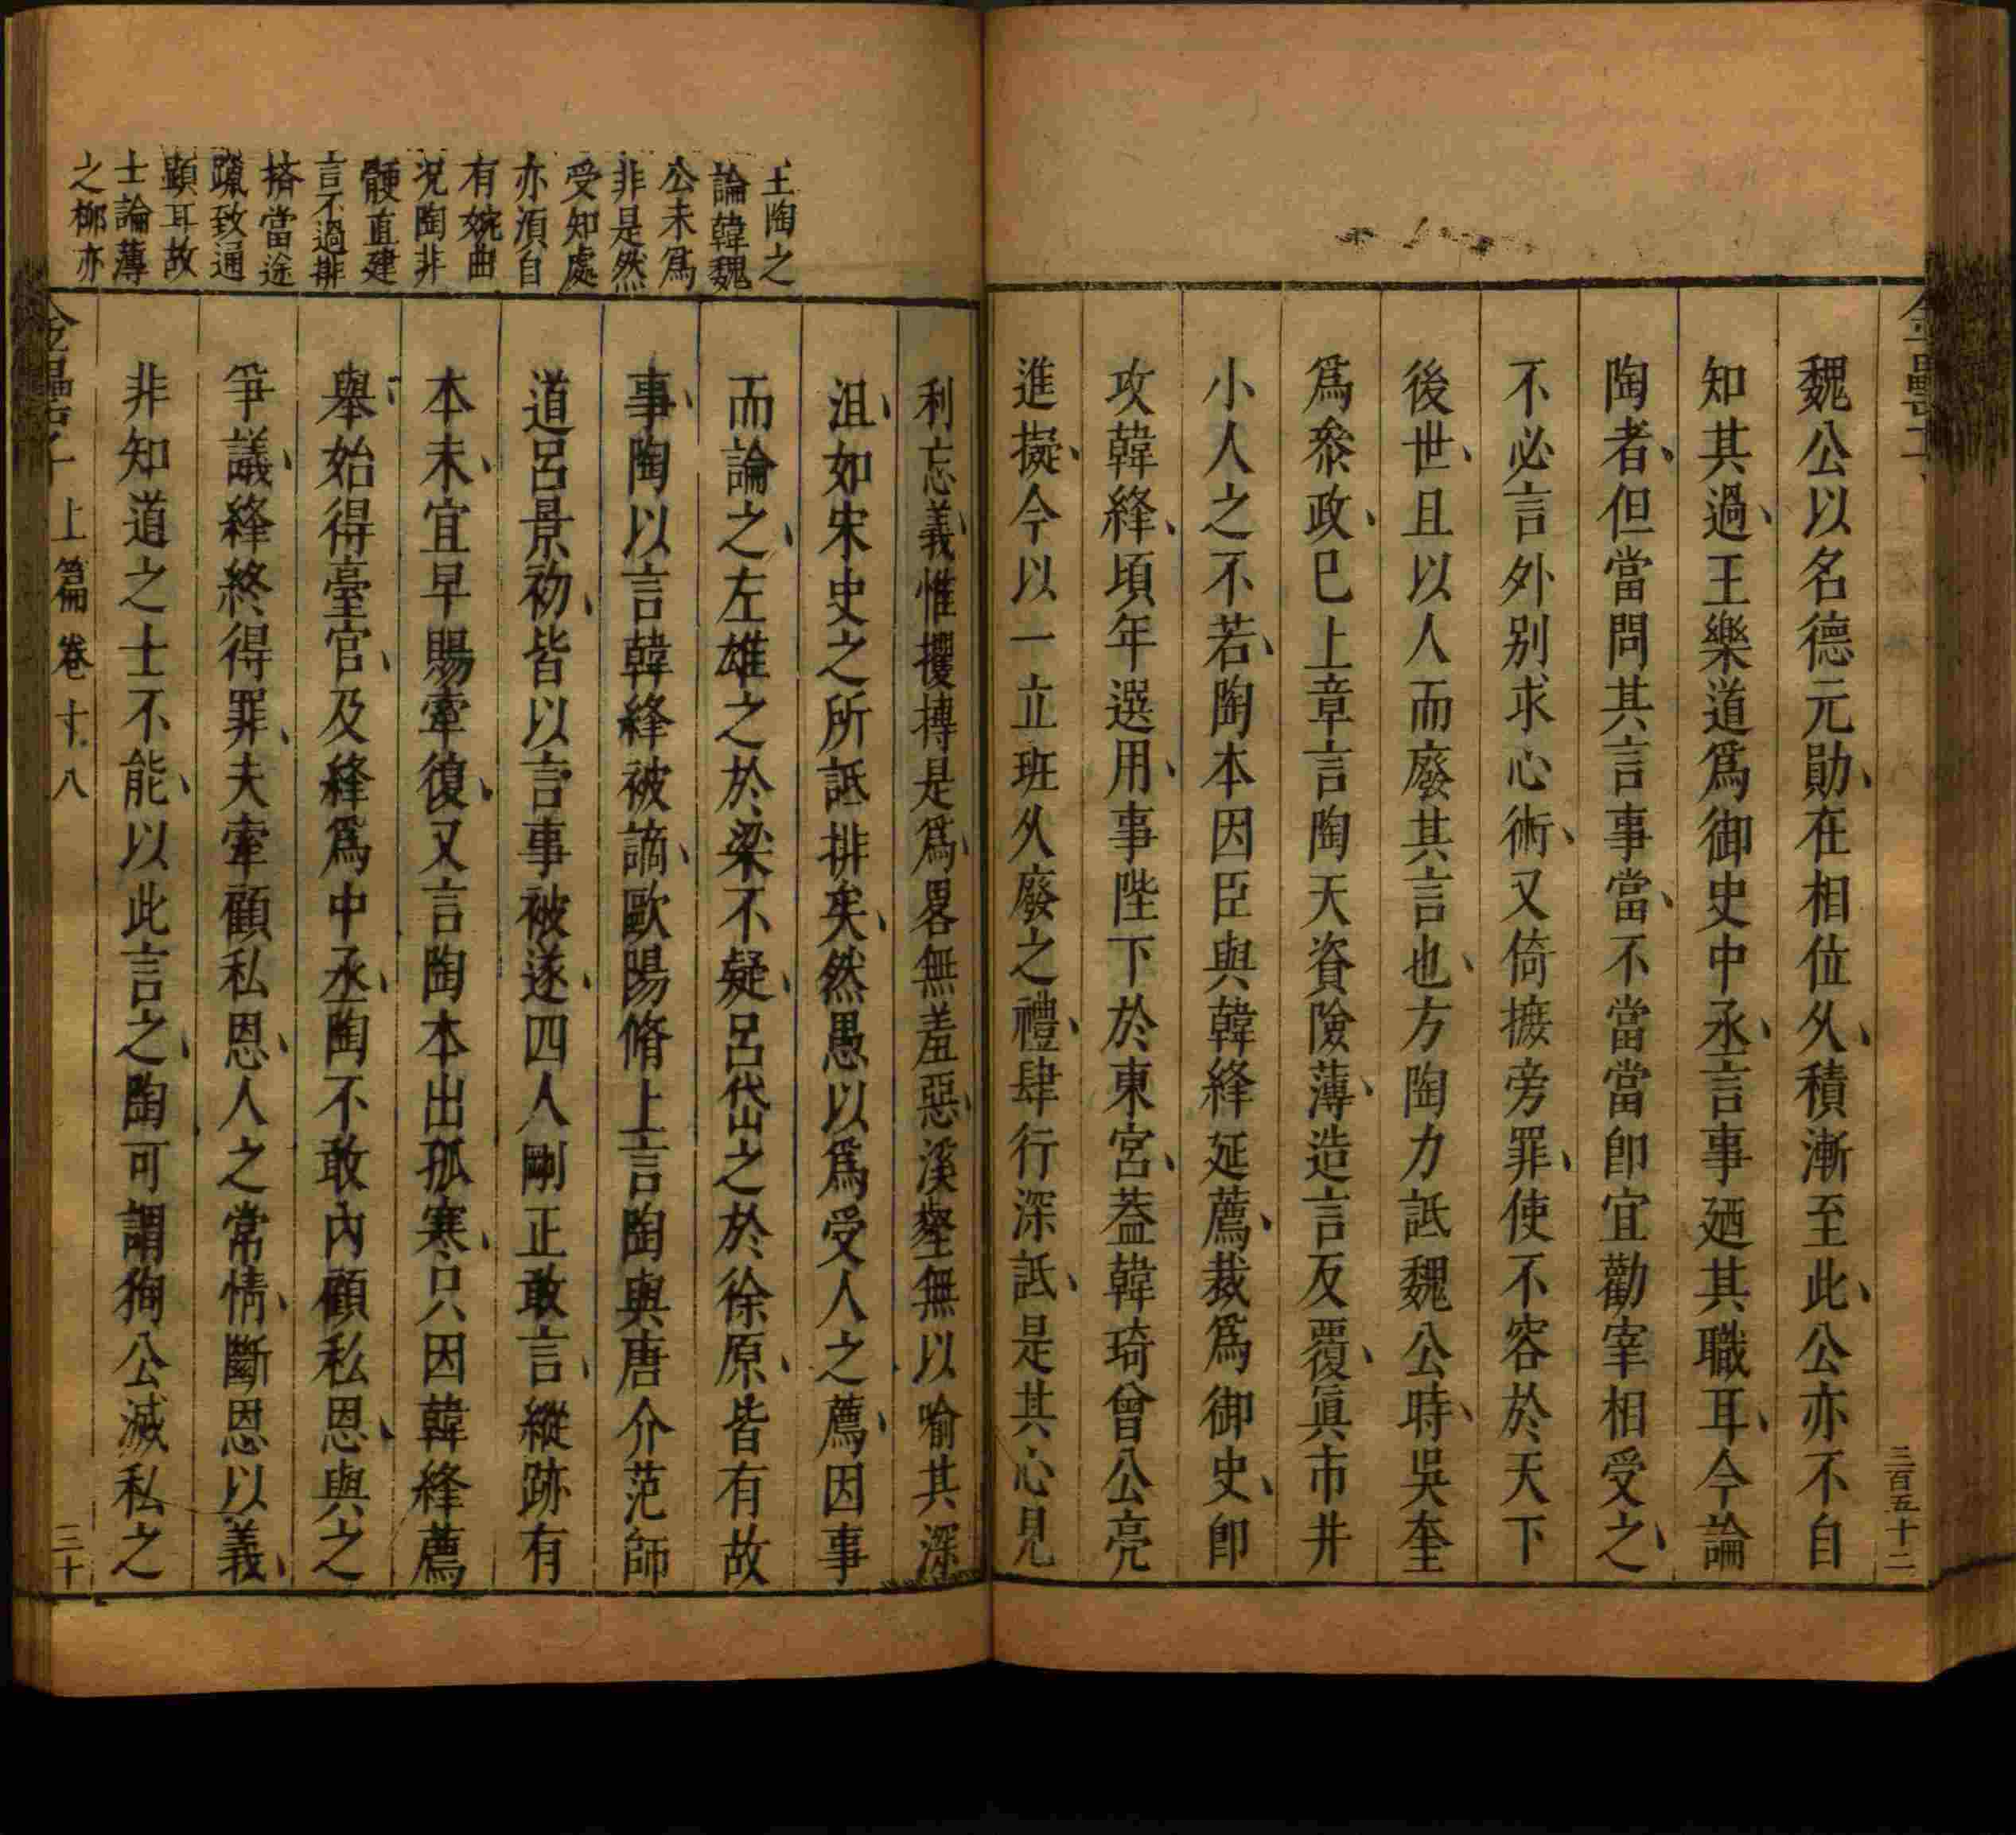 魏公以名德元勛在相位久積漸至此公亦不自
知其過王樂道爲御史中丞言事廼其職耳今論
陶者但當問其言事當不當當卽宜勸宰相受之
不必言外别求心術又倚摭旁罪使不容於天下
後世且以人而廢其言也方陶力詆魏公時吳奎
爲叅政巳上章言陶天資險薄造言反覆眞市井
小人之不若陶本因臣與韓絳延薦裁爲御史卽
攻韓絳頃年選用事陛下於東宮葢韓琦曾公亮
進擬今以一立班久廢之禮肆行深詆是其心見
三百五十二
王陶之
論韓魏
公未爲
非是然
受知處
亦湏自
有婉曲
况陶非
骾直建
言不過排
撘當途
躐致通
顯耳故
士論薄
之栁亦
利忘義惟攫搏是爲畧無羞惡溪壑無以喻其深
沮如宋史之所詆排矣然愚以爲受人之薦因事
而論之左雄之於梁不疑呂岱之於徐原皆有故
事陶以言韓絳被謫歐陽脩上言陶與唐介范師
道呂景初皆以言事被逐四人剛正敢言縱跡有
本末宜早賜牽復又言陶本出孤寒只因韓絳薦
舉始得臺官及絳爲中丞陶不敢內顧私恩與之
爭議絳終得罪夫牽顧私恩人之常情斷恩以義
非知道之士不能以此言之陶可謂狥公滅私之
上篇卷十八
三十